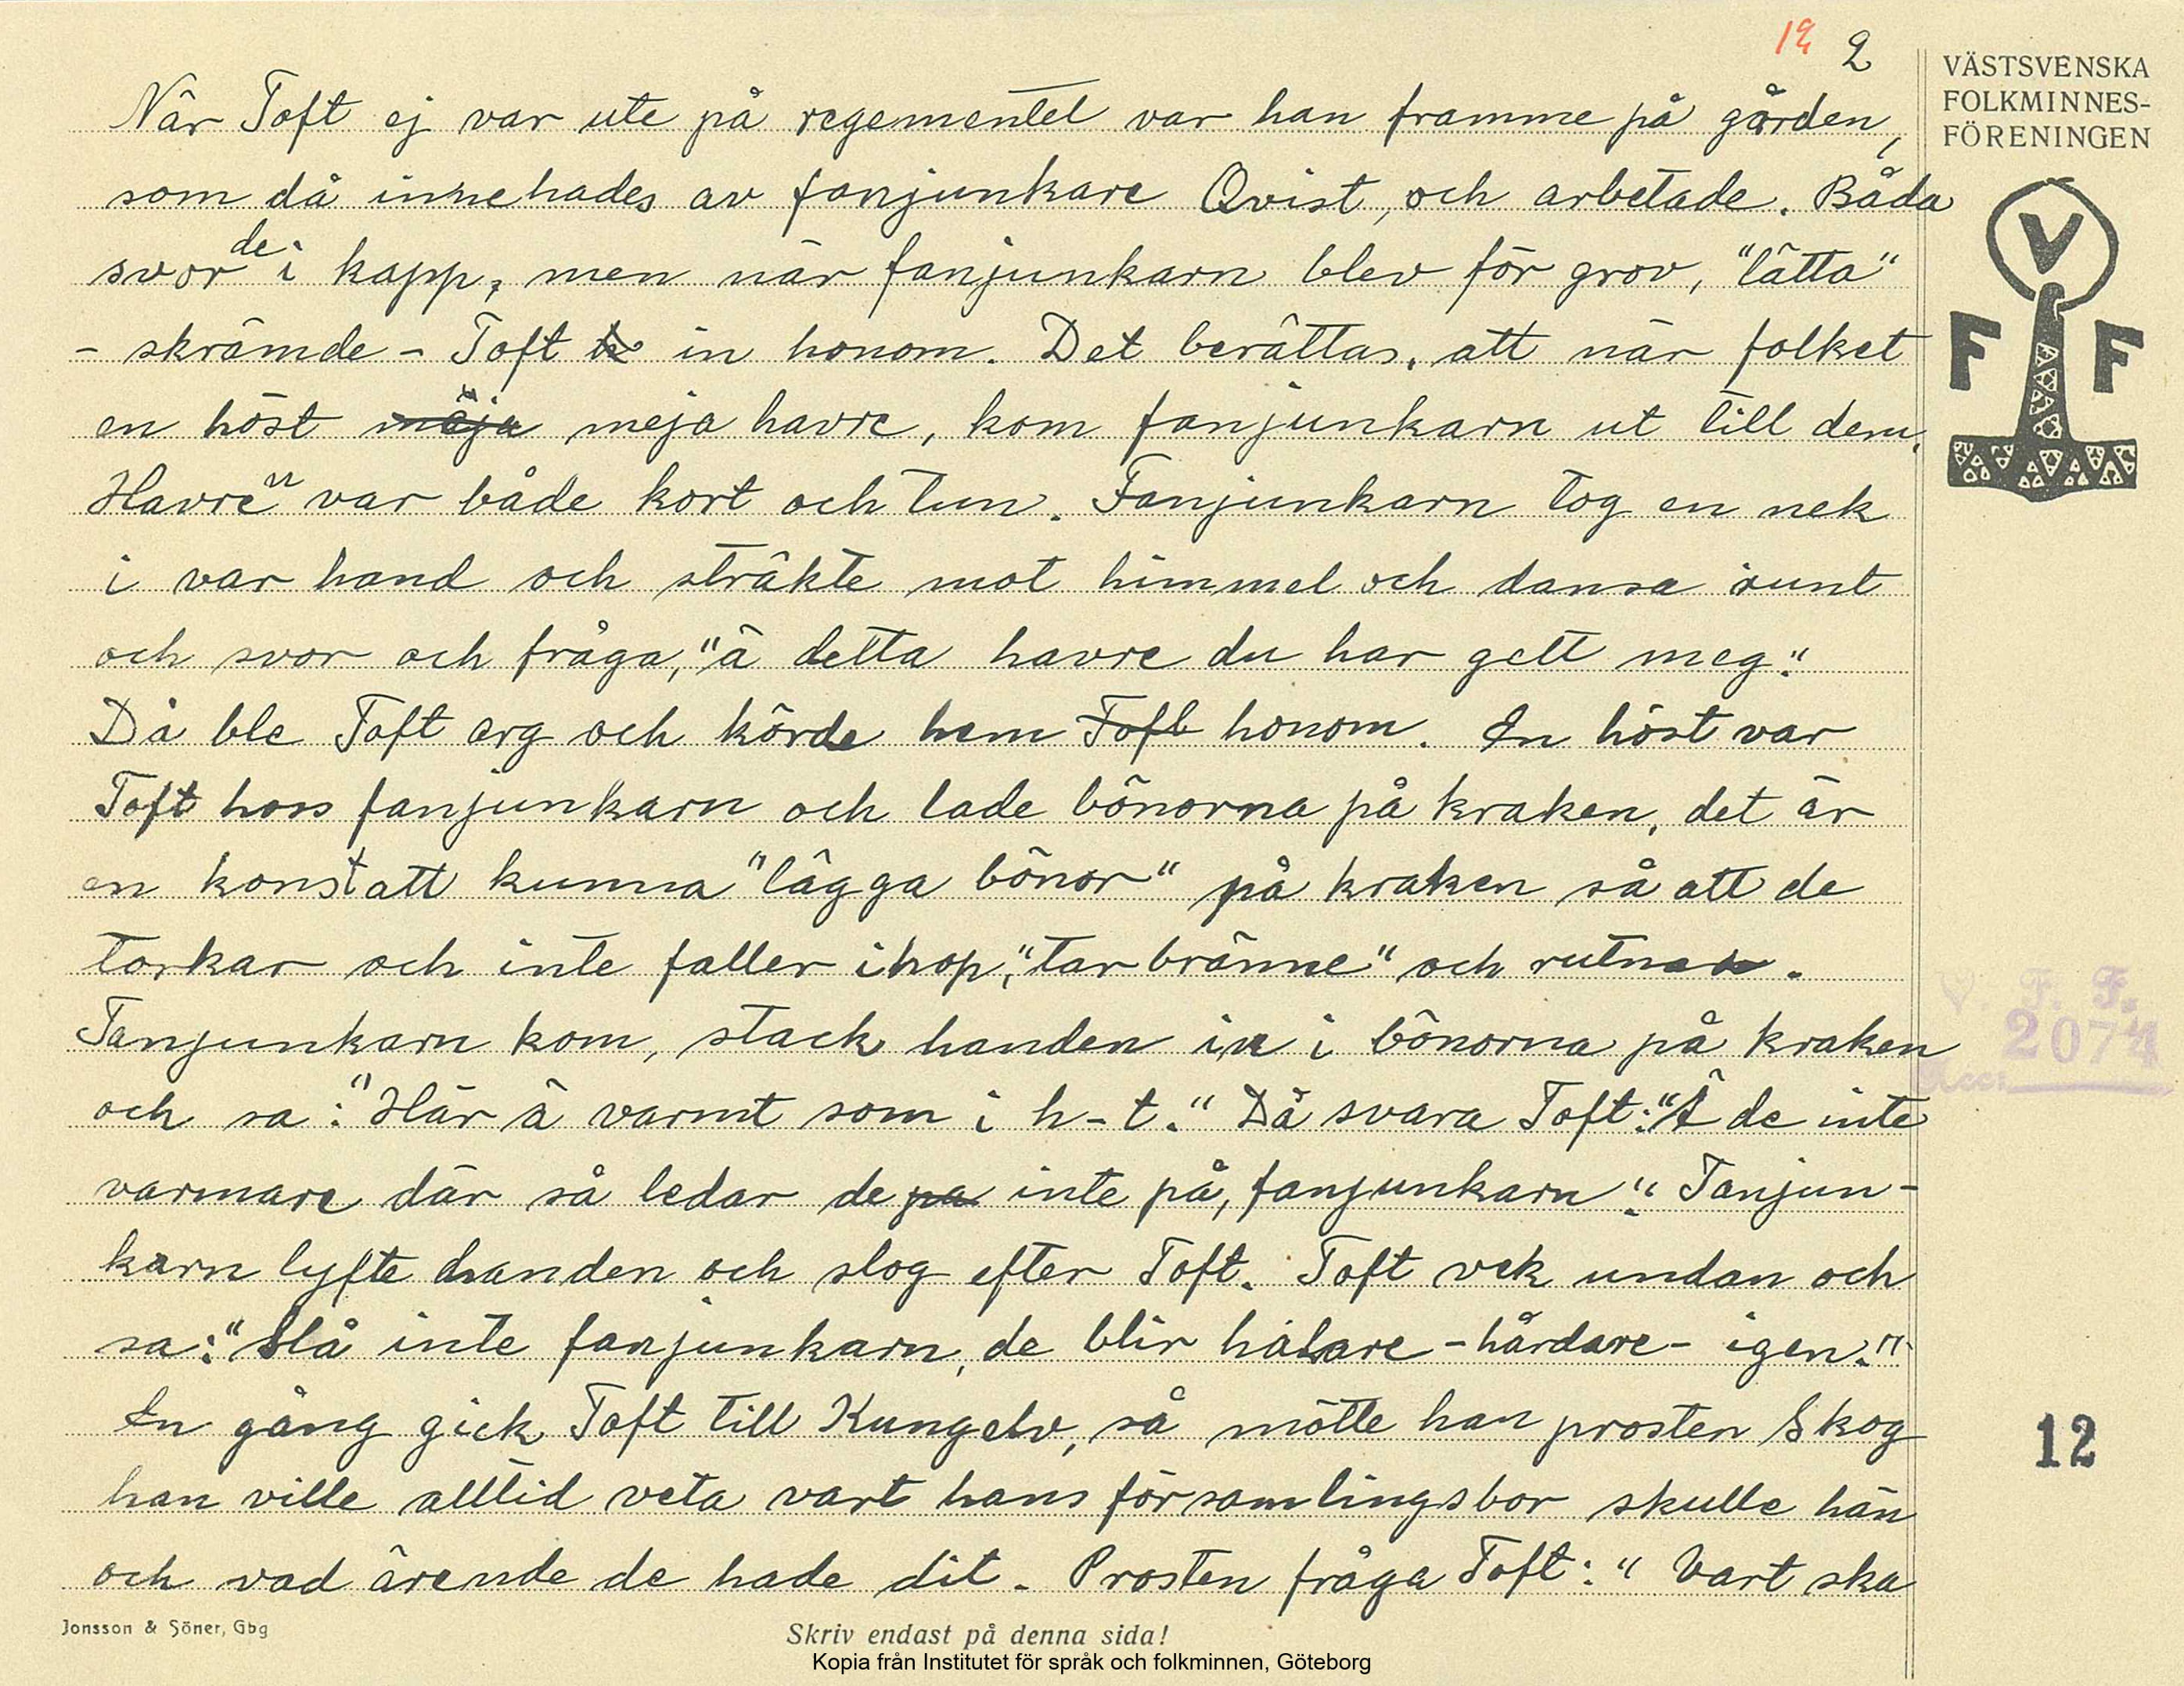 12 2
När Toft ej var ute på regementet var han framme på gården,
som då innehades av fanjunkare Qvist, och arbetade. Båda
svor de i kapp, men när fanjunkarn blev för grov, "lätta"
- skrämde - Toft in honom. Det berättas, att när folket
en höst mäja meja havre, kom fanjunkarn ut till dem.
Havre"n var både kort och tun. Fanjunkarn tog en nek
i var hand och sträkte mot himmel och dansa runt
och svor och fråga, "ä detta havre du har gett meg."
Då ble Toft arg och körde hem Toft honom. En höst var
Toft hoss fanjunkarn och lade bönorna på kraken, det är
en konst att kunna "lägga bönor" på kraken så att de
torkar och inte faller ihop, "tar bränne" och rutna.
Fanjunkarn kom, stack handen in i bönorna på kraken
och sa: "Här ä varmt som i h-t." Då svara Toft: "Ä de inte
varmare där så ledar de på inte på, fanjunkarn." Fanjun-
karn lyfte handen och slog efter Toft. Toft vek undan och
sa: "Slå inte fanjunkarn, de blir hålare - hårdare - igen."
En gång gick Toft till Kungelv, så mötte han prosten Skog
han ville alltid veta vart hans församlingsbor skulle hän
och vad ärende de hade dit. Prosten fråga Toft: "Vart ska
VÄSTSVENSKA
FOLKMINNES-
FÖRENINGEN
V
F F
V. F. F.
2074
Acc.
12
Jonsson & Söner, Gbg
Skriv endast på denna sida!
Kopia från Institutet för språk och folkminnen, Göteborg